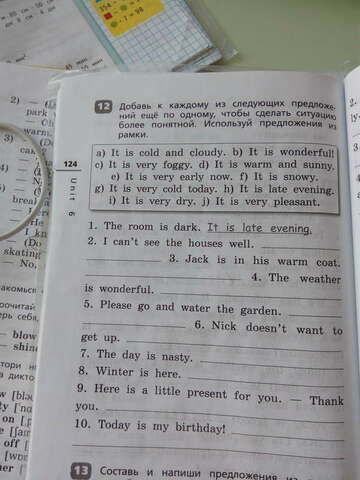 12 Добавь к каждому из следующих предложе-
ний ещё по одному, чтобы сделать ситуацию
более понятной. Используй предложения из
рамки.
a) It is cold and cloudy. b) It is wonderful!
c) It is very foggy. d) It is warm and sunny.
e) It is very early now. f) It is snowy.
g) It is very cold today. h) It is late evening.
i) It is very dry. j) It is very pleasant.
124
Unit 6
1. The room is dark. It is late evening.
2. I can't see the houses well.
3. Jack is in his warm coat.
4. The weather
is wonderful.
5. Please go and water the garden.
6. Nick doesn't want to
get up.
7. The day is nasty.
8. Winter is here.
9. Here is a little present for you. — Thank
you.
10. Today is my birthday!
13 Составь и напиши предложения из